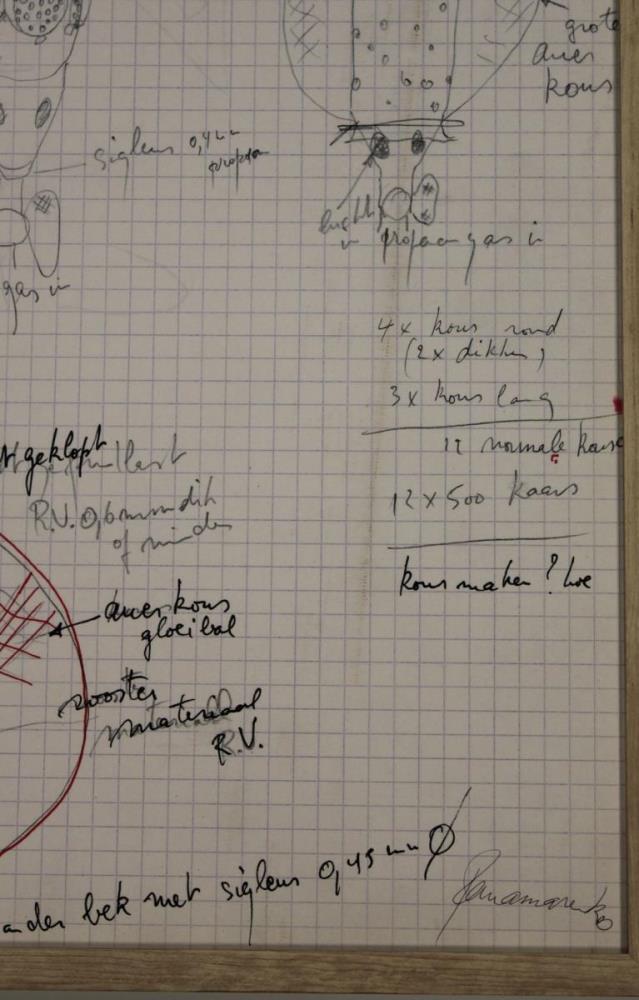 grote
auer
kous
sigleur 0,4 mm
propaan
lucht
in propaan gas in
gas in
4x kous rond
(2x dikte)
3x kous lang
12 normale kous
12 x 500 kaars
kous maken? hoe
geklopt
R.V. 0,6 mm dik
of minder
auerkous
gloeibal
rooster
materiaal
R.V.
ander bek met sigleur 0,45 mm Ø
Panamarenko